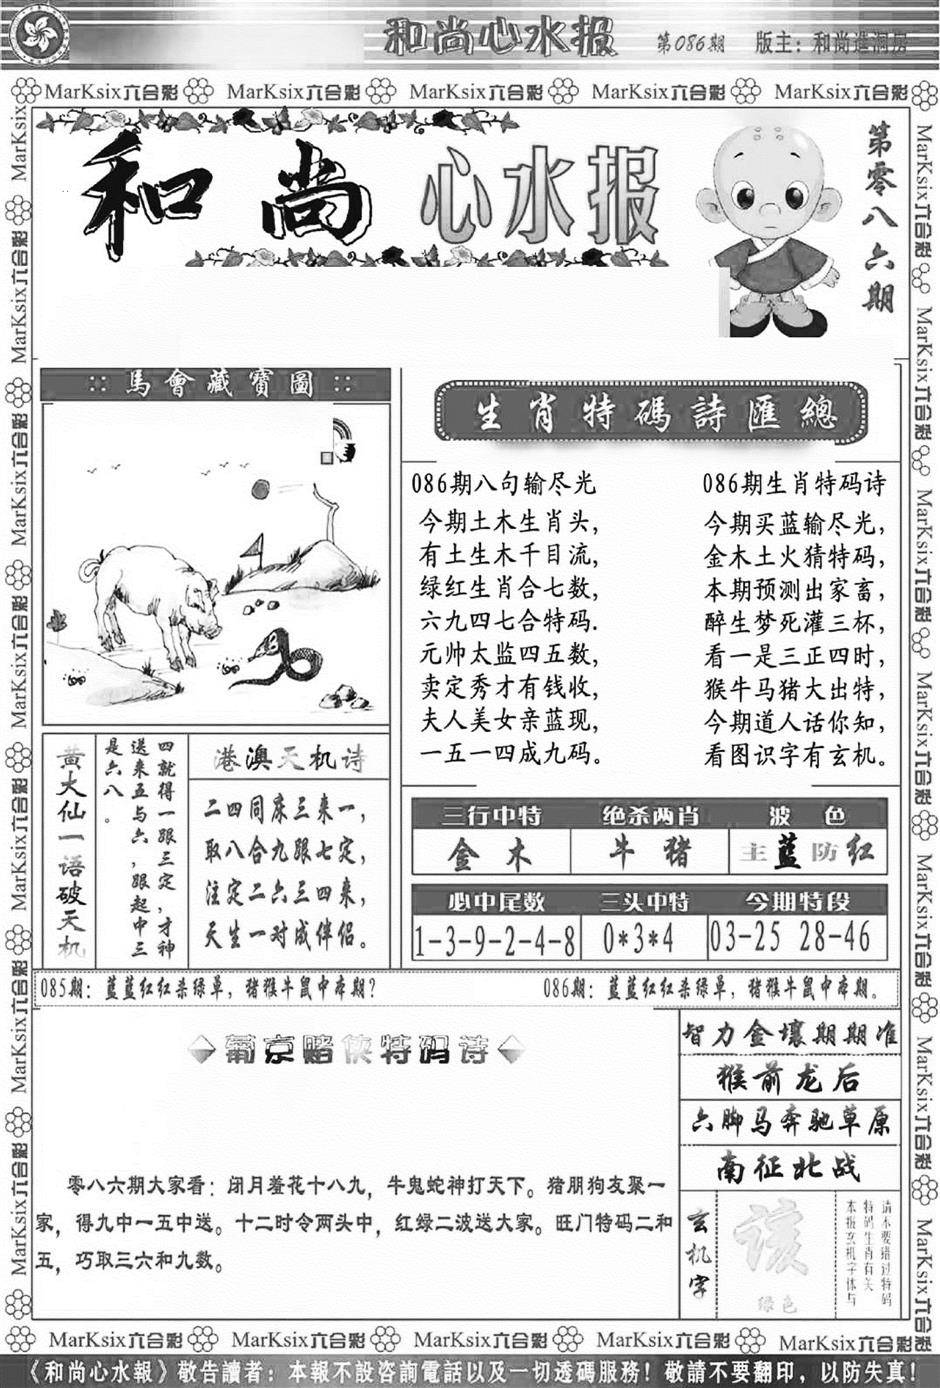 和尚心水报 第086期 版主：和尚造洞房
MarKsix六合彩 MarKsix六合彩 MarKsix六合彩 MarKsix六合彩 MarKsix六合彩
和尚心水报
第零八六期
::馬會藏寶圖::
生肖特碼詩匯總
086期八句输尽光
今期土木生肖头，
有土生木千目流，
绿红生肖合七数，
六九四七合特码.
元帅太监四五数，
卖定秀才有钱收，
夫人美女亲蓝现，
一五一四成九码。
086期生肖特码诗
今期买蓝输尽光，
金木土火猜特码，
本期预测出家畜，
醉生梦死灌三杯，
看一是三正四时，
猴牛马猪大出特，
今期道人话你知，
看图识字有玄机。
黄大仙一语破天机
四就得一跟三定，才神
送来五与六，跟起中三
是六八。
港澳天机诗
二四同床三来一，
取八合九跟七定，
注定二六三四来，
天生一对成伴侣。
三行中特 绝杀两肖 波色
金木 牛猪 主蓝防红
心中尾数 三头中特 今期特段
1-3-9-2-4-8 0*3*4 03-25 28-46
085期：蓝蓝红红杀绿单，猪猴牛鼠中本期？
086期：蓝蓝红红杀绿单，猪猴牛鼠中本期。
葡京赌侠特码诗
零八六期大家看：闭月羞花十八九，牛鬼蛇神打天下。猪朋狗友聚一
家，得九中一五中送。十二时令两头中，红绿二波送大家。旺门特码二和
五，巧取三六和九数。
智力金壤期期准
猴前龙后
六脚马奔驰草原
南征北战
玄机字
该
绿色
请不要错过特码
特码生肖有关
本报玄机字体与
MarKsix六合彩 MarKsix六合彩 MarKsix六合彩 MarKsix六合彩 MarKsix六合彩
《和尚心水報》敬告讀者：本報不設咨詢電話以及一切透碼服務！敬請不要翻印，以防失真！